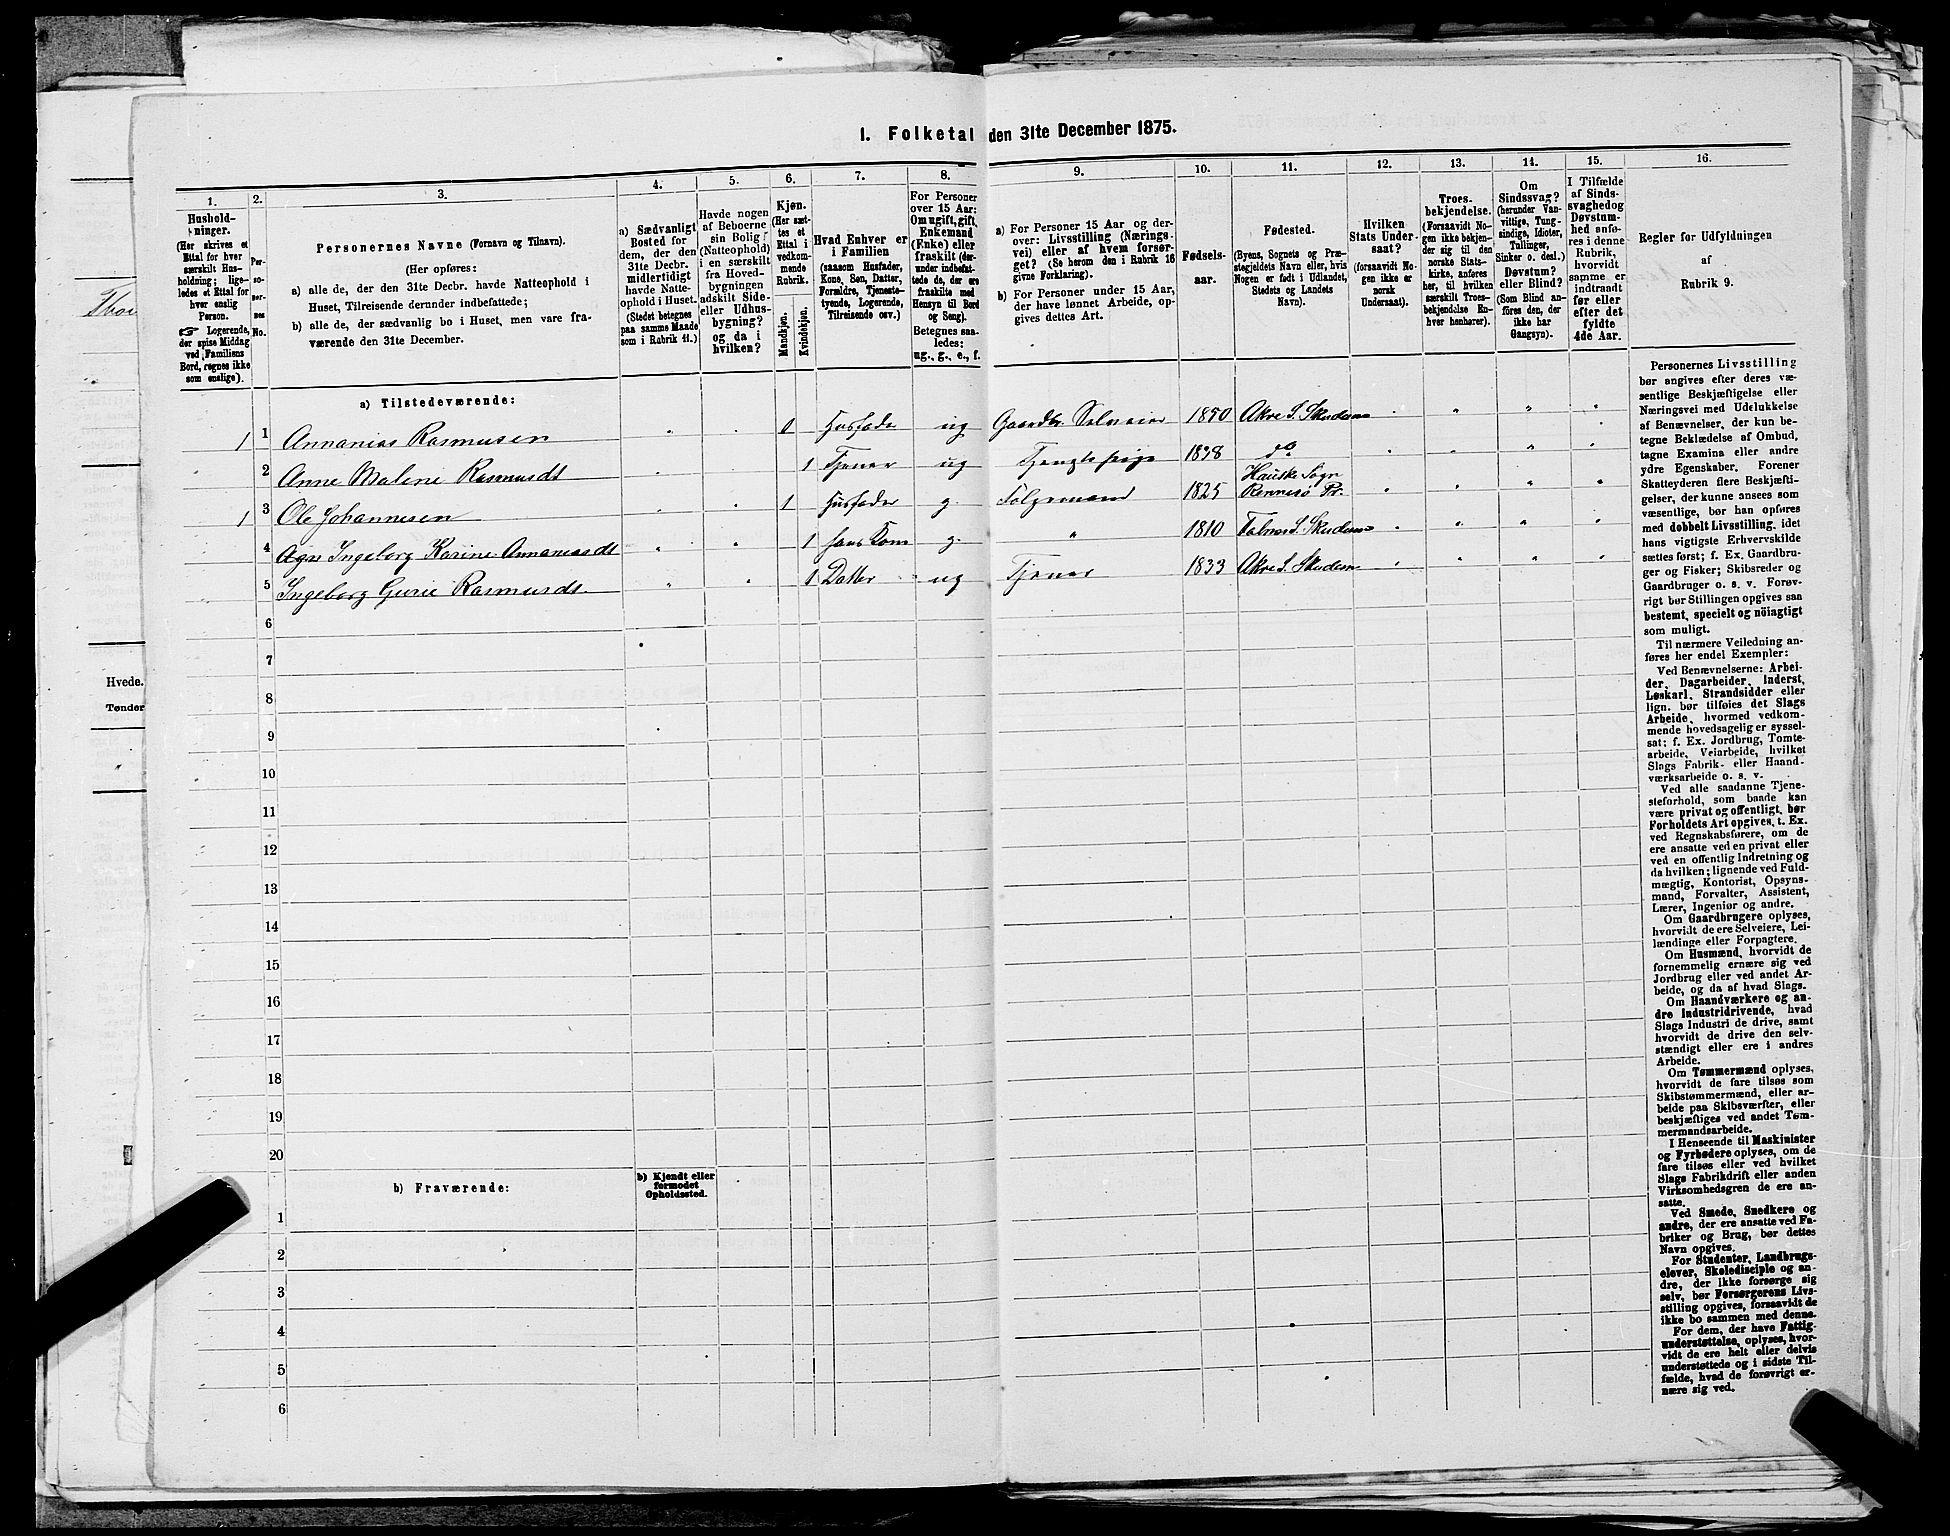 1. Folketal den 31te December 1875.
1.
2.
3.
4.
5.
6.
7.
8.
9.
10.
11.
12.
13.
14.
15.
16.
Hushold-
ninger.
(Her skrives et
Ettal for hver
særskilt Hus-
holdning; lige-
ledes et Ettal for
hver enslig
Person.
☞ Logerende,
der spise Middag
ved Familiens
Bord, regnes ikke
som enslige).
Per-
so-
ner-
nes
No.
Personernes Navne (Fornavn og Tilnavn).
(Her opføres:
a) alle de, der den 31te Decbr. havde Natteophold i
Huset, Tilreisende derunder indbefattede;
b) alle de, der sædvanlig bo i Huset, men vare fra-
værende den 31te December.
a) Sædvanligt
Bosted for
dem, der den
31te Decbr.
midlertidigt
havde Natte-
ophold i Huset.
(Stedet betegnes
paa samme Maade
som i Rubrik 11.)
Havde nogen
af Beboerne
sin Bolig
(Natteophold)
i en særskilt
fra Hoved-
bygningen
adskilt Side-
eller Udhus-
bygning?
og da i
hvilken?
Kjøn.
(Her sæt-
tes et
Ettal i
vedkom-
mende
Rubrik.
Mandkjøn.
Kvindekjøn.
Hvad Enhver er
i Familien
(saasom Husfader,
Kone, Søn, Datter,
Forældre, Tjeneste-
tyende, Logerende,
Tilreisende osv.)
For Personer
over 15 Aar:
Om ugift, gift,
Enkemand
(Enke) eller
fraskilt (der-
under indbefat-
tede de, der ere
fraskilte med
Hensyn til Bord
og Seng).
Betegnes saa-
ledes:
ug., g., e., f.
a) For Personer 15 Aar og der-
over: Livsstilling (Nærings-
vei) eller af hvem forsør-
get? (Se herom den i Rubrik 16
givne Forklaring).
b) For Personer under 15 Aar,
der have lønnet Arbeide, op-
gives dettes Art.
Fødsels-
aar.
Fødested.
(Byens, Sognets og Præ-
stegjeldets Navn eller, hvis
Nogen er født i Udlandet,
Stedets og Landets
Navn).
Hvilken
Stats Under-
saat?
(forsaavidt No-
gen ikke er
norsk
Undersaat).
Troes-
bekjendelse.
(Forsaavidt No-
gen ikke bekjen-
der sig til den
norske Stats-
kirke, anføres
her, til hvilken
særskilt Troes-
bekjendelse En-
hver henhører).
Om
Sindssvag?
(herunder Van-
vittige, Tung-
sindige, Idioter,
Tullinger,
Sinker o. desl.)
Døvstum?
eller Blind?
(Som Blind an-
føres den, der
ikke har
Gangsyn).
I Tilfælde
af Sinds-
svaghed og
Døvstum-
hed anfø-
res i denne
Rubrik,
hvorvidt
samme er
indtraadt
før eller
efter det
fyldte
4de Aar.
Regler for Udfyldningen
af
Rubrik 9.
a) Tilstedeværende:
1 1 Annanias Rasmusen " " 1 Husfader ug Gaardbr. Selveier 1850 Akre S. Skudesn " " " "
2 Anne Malene Rasmusdt " " 1 Tjener ug Tjenestepige 1838 do " " " "
1 3 Ole Johannesen " " 1 Husfader g. Følgemand 1825 Hauske Sogn Rennesø Pr. " " " "
4 Agn Ingeborg Karine Annaniasdt " " 1 hans Kone g. " 1810 Falnes S. Skudesn " " " "
5 Ingeborg Gurie Rasmusdt. " " 1 Datter ug Tjener 1833 Akre S. Skudesn " " " "
6
7
8
9
10
11
12
13
14
15
16
17
18
19
20
b) Fraværende:
b) Kjendt eller
formodet
Opholdssted.
1
2
3
4
5
6
Personernes Livsstilling
bør angives efter deres væ-
sentlige Beskjæftigelse eller
Næringsvei med Udelukkelse
af Benævnelser, der kun be-
tegne Beklædelse af Ombud,
tagne Examina eller andre
ydre Egenskaber. Forener
Skatteyderen flere Beskjæfti-
gelser, der kunne ansees som
væsentlige, bør han opføres
med dobbelt Livsstilling, idet
hans vigtigste Erhvervskilde
sættes først; f. Ex. Gaardbru-
ger og Fisker; Skibsreder og
Gaardbruger o. s. v. Forøv-
rigt bør Stillingen opgives saa
bestemt, specielt og nöiagtigt
som muligt.
Til nærmere Veiledning an-
føres her endel Exempler:
Ved Benævnelserne: Arbei-
der, Dagarbeider, Inderst,
Løskarl, Strandsidder eller
lign. bør tilføies det Slags
Arbeide, hvormed vedkom-
mende hovedsagelig er syssel-
sat; f. Ex. Jordbrug, Tomte-
arbeide, Veiarbeide, hvilket
Slags Fabrik- eller Haand-
værksarbeide o. s. v.
Ved alle saadanne Tjene-
steforhold, som baade kan
være privat og offentligt, bør
Forholdets Art opgives, t. Ex.
ved Regnskabsførere, om de
ere ansatte ved en privat eller
ved en offentlig Indretning og
da hvilken; lignende ved Fuld-
mægtig, Kontorist, Opsyns-
mand, Forvalter, Assistent,
Lærer, Ingeniør og andre.
Om Gaardbrugere oplyses,
hvorvidt de ere Selveiere, Lei-
lændinge eller Forpagtere.
Om Husmænd, hvorvidt de
fornemmelig ernære sig ved
Jordbrug eller ved andet Ar-
beide, og da af hvad Slags.
Om Haandværkere og an-
dre Industridrivende, hvad
Slags Industri de drive, samt
hvorvidt de drive den selv-
stændigt eller ere i andres
Arbeide.
Om Tømmermænd oplyses,
hvorvidt de fare tilsøs som
Skibstømmermænd, eller ar-
beide paa Skibsværfter, eller
beskjæftiges ved andet Tøm-
mermandsarbeide.
I Henseende til Maskinister
og Fyrbødere oplyses, om de
fare tilsøs eller ved hvilket
Slags Fabrikdrift eller anden
Virksomhedsgren de ere an-
satte.
Ved Smede, Snedkere og
andre, der ere ansatte ved Fa-
briker og Brug, bør dettes
Navn opgives.
For Studenter, Landbrugs-
elever, Skoledisciple og an-
dre, der ikke forsørge sig
selv, bør Forsørgerens Livs-
stilling opgives, forsaavidt de
ikke bo sammen med denne.
For dem, der have Fattig-
understøttelse, oplyses, hvor-
vidt de ere helt eller delvis
understøttede og i sidste Til-
fælde, hvad de forøvrigt er-
nære sig ved.
Hvede.
Tønder